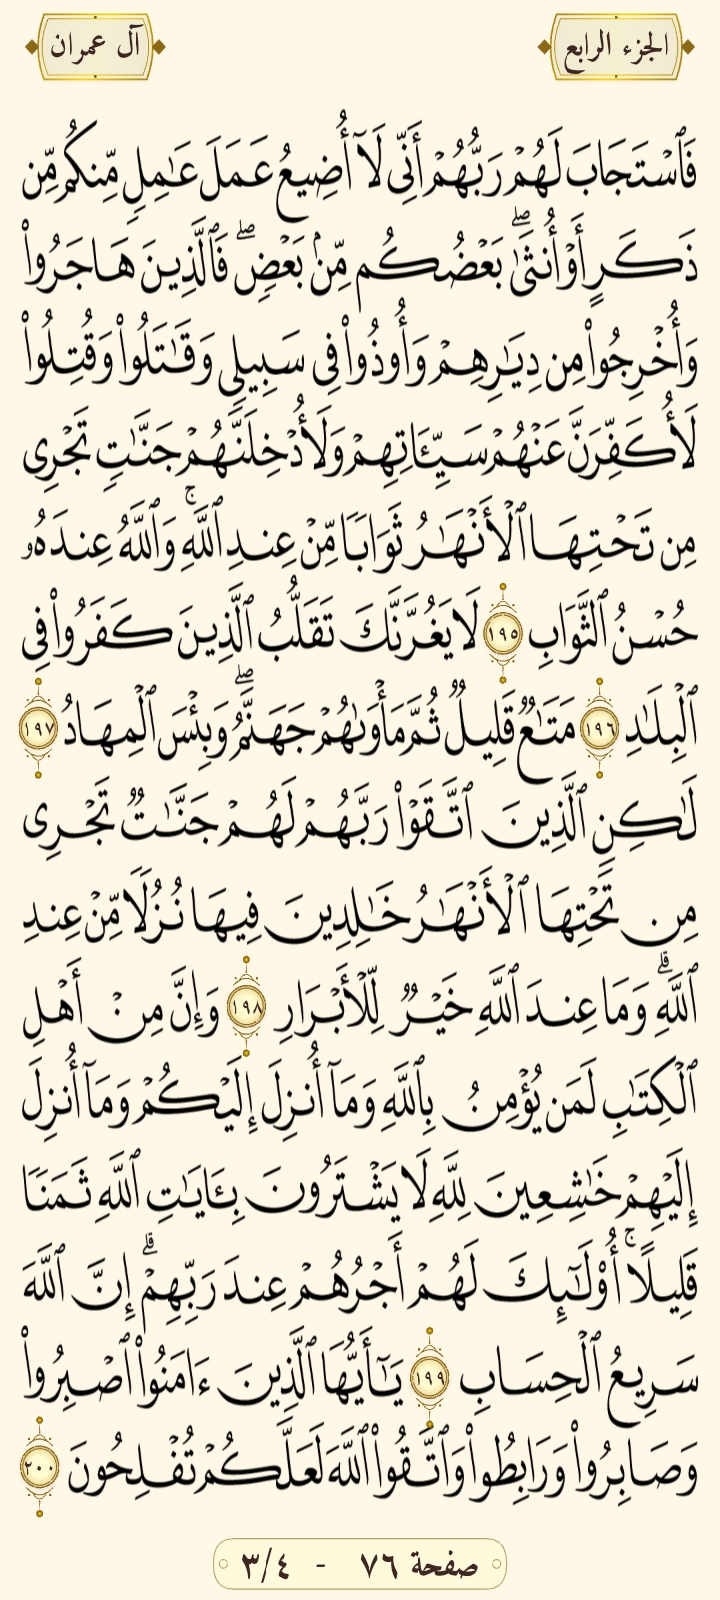 الجزء الرابع
آل عمران
فَٱسْتَجَابَ لَهُمْ رَبُّهُمْ أَنِّى لَآ أُضِيعُ عَمَلَ عَٰمِلٍ مِّنكُم مِّن
ذَكَرٍ أَوْ أُنثَىٰ ۖ بَعْضُكُم مِّنۢ بَعْضٍ ۖ فَٱلَّذِينَ هَاجَرُوا۟
وَأُخْرِجُوا۟ مِن دِيَٰرِهِمْ وَأُوذُوا۟ فِى سَبِيلِى وَقَٰتَلُوا۟ وَقُتِلُوا۟
لَأُكَفِّرَنَّ عَنْهُمْ سَيِّـَٔاتِهِمْ وَلَأُدْخِلَنَّهُمْ جَنَّٰتٍ تَجْرِى
مِن تَحْتِهَا ٱلْأَنْهَٰرُ ثَوَابًا مِّنْ عِندِ ٱللَّهِ ۚ وَٱللَّهُ عِندَهُۥ
حُسْنُ ٱلثَّوَابِ ١٩٥ لَا يَغُرَّنَّكَ تَقَلُّبُ ٱلَّذِينَ كَفَرُوا۟ فِى
ٱلْبِلَٰدِ ١٩٦ مَتَٰعٌ قَلِيلٌ ثُمَّ مَأْوَىٰهُمْ جَهَنَّمُ ۖ وَبِئْسَ ٱلْمِهَادُ ١٩٧
لَٰكِنِ ٱلَّذِينَ ٱتَّقَوْا۟ رَبَّهُمْ لَهُمْ جَنَّٰتٌ تَجْرِى
مِن تَحْتِهَا ٱلْأَنْهَٰرُ خَٰلِدِينَ فِيهَا نُزُلًا مِّنْ عِندِ
ٱللَّهِ ۗ وَمَا عِندَ ٱللَّهِ خَيْرٌ لِّلْأَبْرَارِ ١٩٨ وَإِنَّ مِنْ أَهْلِ
ٱلْكِتَٰبِ لَمَن يُؤْمِنُ بِٱللَّهِ وَمَآ أُنزِلَ إِلَيْكُمْ وَمَآ أُنزِلَ
إِلَيْهِمْ خَٰشِعِينَ لِلَّهِ لَا يَشْتَرُونَ بِـَٔايَٰتِ ٱللَّهِ ثَمَنًا
قَلِيلًا ۚ أُو۟لَٰٓئِكَ لَهُمْ أَجْرُهُمْ عِندَ رَبِّهِمْ ۗ إِنَّ ٱللَّهَ
سَرِيعُ ٱلْحِسَابِ ١٩٩ يَٰٓأَيُّهَا ٱلَّذِينَ ءَامَنُوا۟ ٱصْبِرُوا۟
وَصَابِرُوا۟ وَرَابِطُوا۟ وَٱتَّقُوا۟ ٱللَّهَ لَعَلَّكُمْ تُفْلِحُونَ ٢٠٠
صفحة ٧٦ - ٣/٤